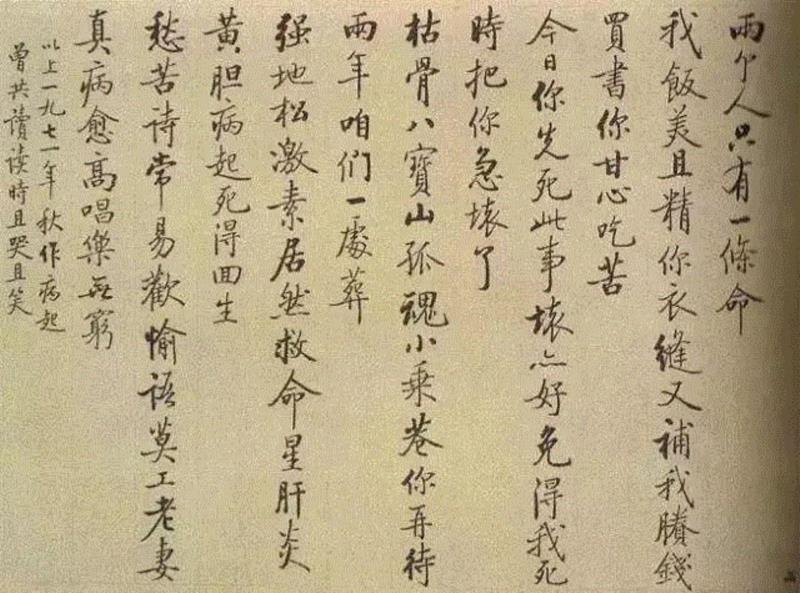 兩个人只有一條命
我飯美且精你衣縫又補我賸錢
買書你甘心吃苦
今日你先死此事壞亦好免得我死
時把你急壞了
枯骨八寶山孤魂小乘巷你再待
兩年咱们一處葬
强地松激素居然救命星肝炎
黄胆病起死得回生
愁苦诗常易歡愉语莫工老妻
真病愈高唱樂無窮
以上一九七一年秋作病起
曾共讀读時且哭且笑